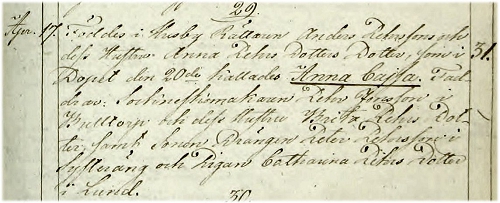 29.
Apr. 17. Föddes i Husby Rättaren Anders Pehrssons och 31.
dess Hustru Anna Pehrs Dotters Dotter, som i
Dopet den 20de kallades Anna Cajsa. Fad-
drar: Sochneskomakaren Pehr Jonsson i
och dess Hustru Brita Pehrs Dot-
ter, samt Sonen Drängen Peter Pehrsson i
och Pigan Catharina Pehrs Dotter
i Lund.
30.